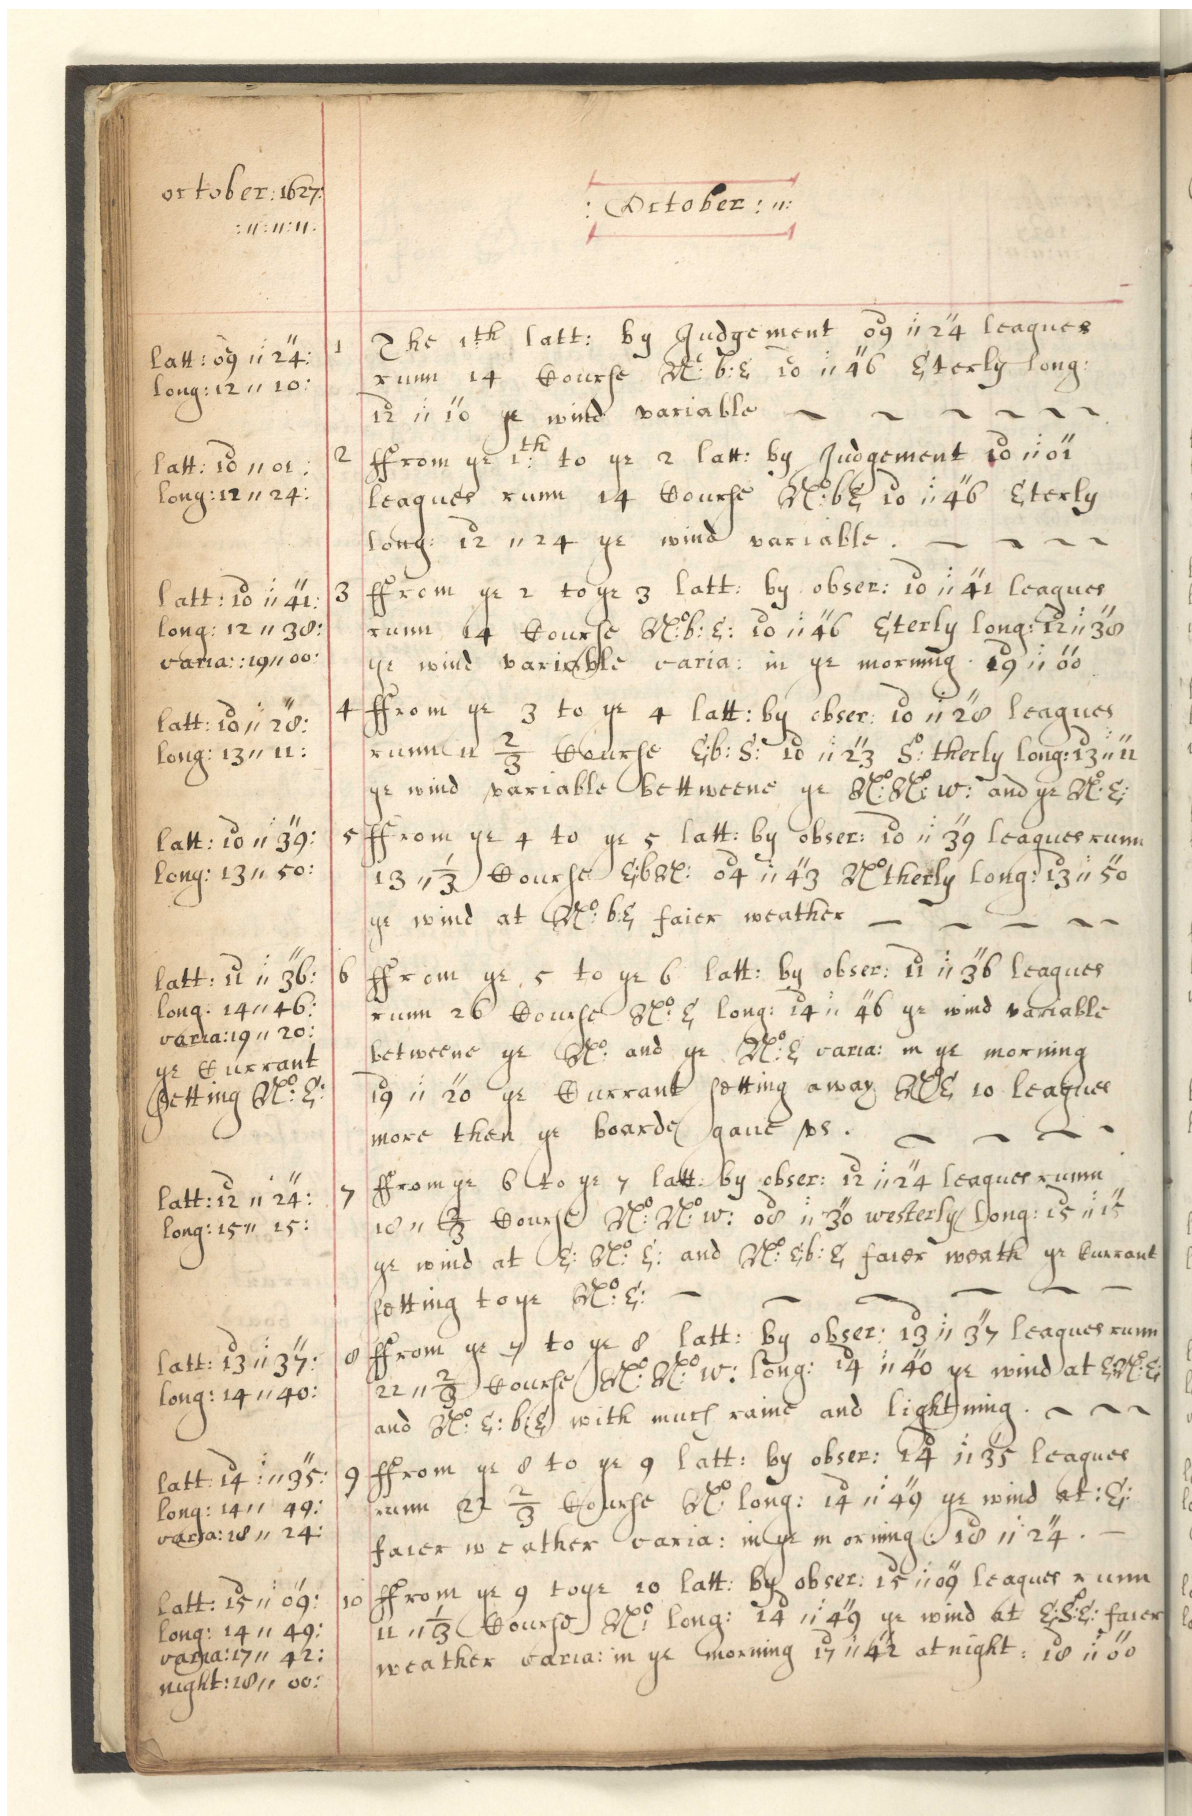 october: 1627:
: 11: 11: 11.
: October : 11:
latt: 09 11 24:
long: 12 11 10:
1 The 1th latt: by Judgement 09 11 24 leagues
runn 14 Course No: b: E 10 11 46 Eterly long:
12 11 10 ye wind variable
latt: 10 11 01:
long: 12 11 24:
2 ffrom ye 1:th to ye 2 latt: by Judgement 10 11 01
leagues runn 14 Course No: b E 10 11 46 Eterly
long: 12 11 24 ye wind variable.
latt: 10 11 41:
long: 12 11 38:
varia: :19 11 00:
3 ffrom ye 2 to ye 3 latt: by obser: 10 11 41 leagues
runn 14 Course No: b: E: 10 11 46 Eterly long: 12 11 38
ye wind variable varia: in ye morning. 19 11 00
latt: 10 11 28:
long: 13 11 11:
4 ffrom ye 3 to ye 4 latt: by obser: 10 11 28 leagues
runn 11 2/3 Course E: b: S: 10 11 23 So: therly long: 13 11 11
ye wind variable bettweene ye No: No: w: and ye No: E:
latt: 10 11 39:
long: 13 11 50:
5 ffrom ye 4 to ye 5 latt: by obser: 10 11 39 leagues runn
13 11 1/3 Course E: b No: 04 11 43 Notherly long: 13 11 50
ye wind at No: b: E faier weather
latt: 11 11 36:
long: 14 11 46:
varia: 19 11 20:
ye Currant
setting No: E:
6 ffrom ye 5 to ye 6 latt: by obser: 11 11 36 leagues
runn 26 Course No: E long: 14 11 46 ye wind variable
betweene ye No: and ye No: E varia: in ye morning
19 11 20 ye Currant setting away No E 10 leagues
more then ye boarde gaue vs.
latt: 12 11 24:
long: 15 11 15:
7 ffrom ye 6 to ye 7 latt: by obser: 12 11 24 leagues runn
18 11 2/3 Course No: No: w: 08 11 30 westerly long: 15 11 15
ye wind at E: No: E: and No: E b: E faier weath ye Currant
setting to ye No: E:
latt: 13 11 37:
long: 14 11 40:
8 ffrom ye 7 to ye 8 latt: by obser: 13 11 37 leagues runn
22 11 2/3 Course No: No: w: long: 14 11 40 ye wind at E No: E:
and No: E: b: E with much raine and lightning.
latt: 14 11 35:
long: 14 11 49:
varia: 18 11 24:
9 ffrom ye 8 to ye 9 latt: by obser: 14 11 35 leagues
runn 22 2/3 Course No: long: 14 11 49 ye wind at: E:
faier weather varia: in ye morning: 18 11 24.
latt: 15 11 09:
long: 14 11 49:
varia: 17 11 42:
night: 18 11 00:
10 ffrom ye 9 to ye 10 latt: by obser: 15 11 09 leagues runn
11 11 1/3 Course No: long: 14 11 49 ye wind at E: S: E: faier
weather varia: in ye morning 17 11 42 at night: 18 11 00